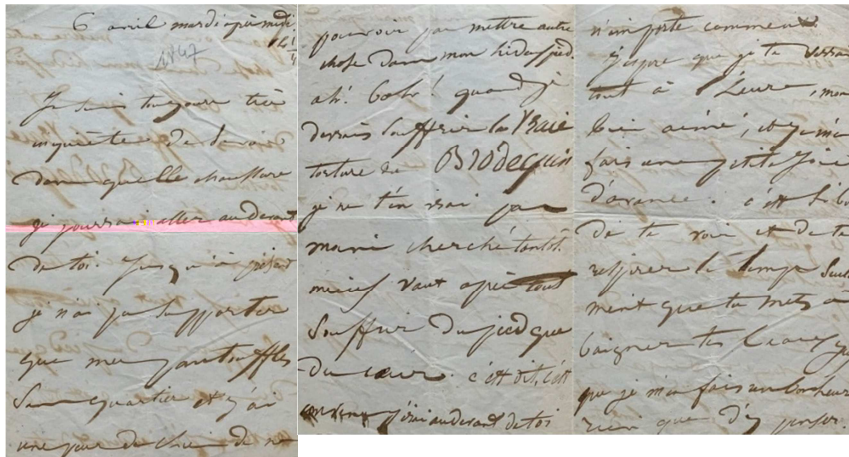 6 avril mardi après midi
1847
Je suis toujours très
inquiète de savoir
dans quelle chaussure
je pourrai aller au devant
de toi. Jusqu'à présent
je n'ai pu supporter
que mes pantouffles
sans quartier et j'ai
une peur de chien de ne
pouvoir pas mettre autre
chose dans mon hideux pied.
ah! bah! quand je
devrais souffrir la Vraie
torture du BRODEQUIN
je ne t'en irai pas
moins chercher tantôt.
mieux vaut après tout
souffrir du pied que
du cœur. c'est dit, c'est
convenu j'irai au devant de toi
n'importe comment.
J'espère que je te verrai
tout à l'heure, mon
bien aimé, et je m'en
fais une petite joie
d'avance. c'est si bon
de te voir et de te
respirer le temps seule
ment que tu mets à
baigner tes beaux
que je m'en fais un bonheur
rien que d'y penser.